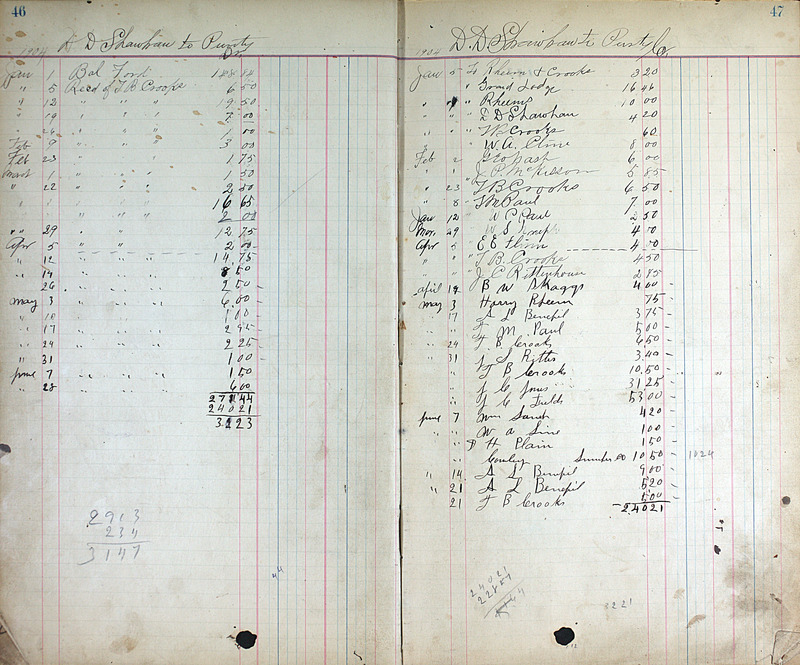 46
1904 D D Shawhan to Purity
Dr.
Jan 1 Bal Ford 188 84
" 5 Recd of T B Crooks 6 50
" 12 " " " 19 50
" 19 " " " 7 00
" 26 " " " 1 00
Feb 9 " " " 3 00
Feb 23 " " " 1 75
March 1 " " " 1 50
" 22 " " " 2 50
" " " " 16 65
" " " 2 00
" 29 " " 12 75
Apr 5 " " 2 00
" 12 " " " 14 75
" 14 " " " 8 50
26 " " " 2 50
May 3 " " " 6 00
" 10 " " " 1 00
" 17 " " "
" 24 " " " 2 25
" 31 " " " 1 00
June 7 " " " 1 50
" 28 " " " 6 00
44
240 21
23
2913
234
3147
47
1904 D. D. Shawhan to Purity Cr.
Jan 5 Rheem & Crooks 3 20
" " Grand Lodge 16 46
" " Rheems 10 00
" " D D Shawhan 4 20
" " T B Crooks 60
" W. A. Cline 8 00
Feb 2 Nash 6 00
" " J P McKissom 5 85
" 23 " T B Crooks 6 50
" 8 " T M Paul 7 00
Jan 12 " W C Paul 2 50
Mar. 29 " W S 4 00
Apr 5 " E E Flinn 4 00
" " T. B. Crooks 4 50
" " J. C. Rittenhouse 2 85
April 19 B W Skaggs 4 00
May 3 Harry Rheem 75
" 17 A L Benefil 3 75
" " T M. Paul 5 00
" 24 T B Crooks 6 50
" 31 J S Ritter 3 40
" T B Crooks 10 50
" J C Jones 31 25
" J C Fields 53 00
June 7 Wm Sarver 4 20
" " W A Sine 1 00
" D H Plain 1 50
" 10 50 1024
" 14 A L Benefil 9 00
" 21 A L Benefil 5 20
21 T B Crooks 5 00
240 21
24021
3221